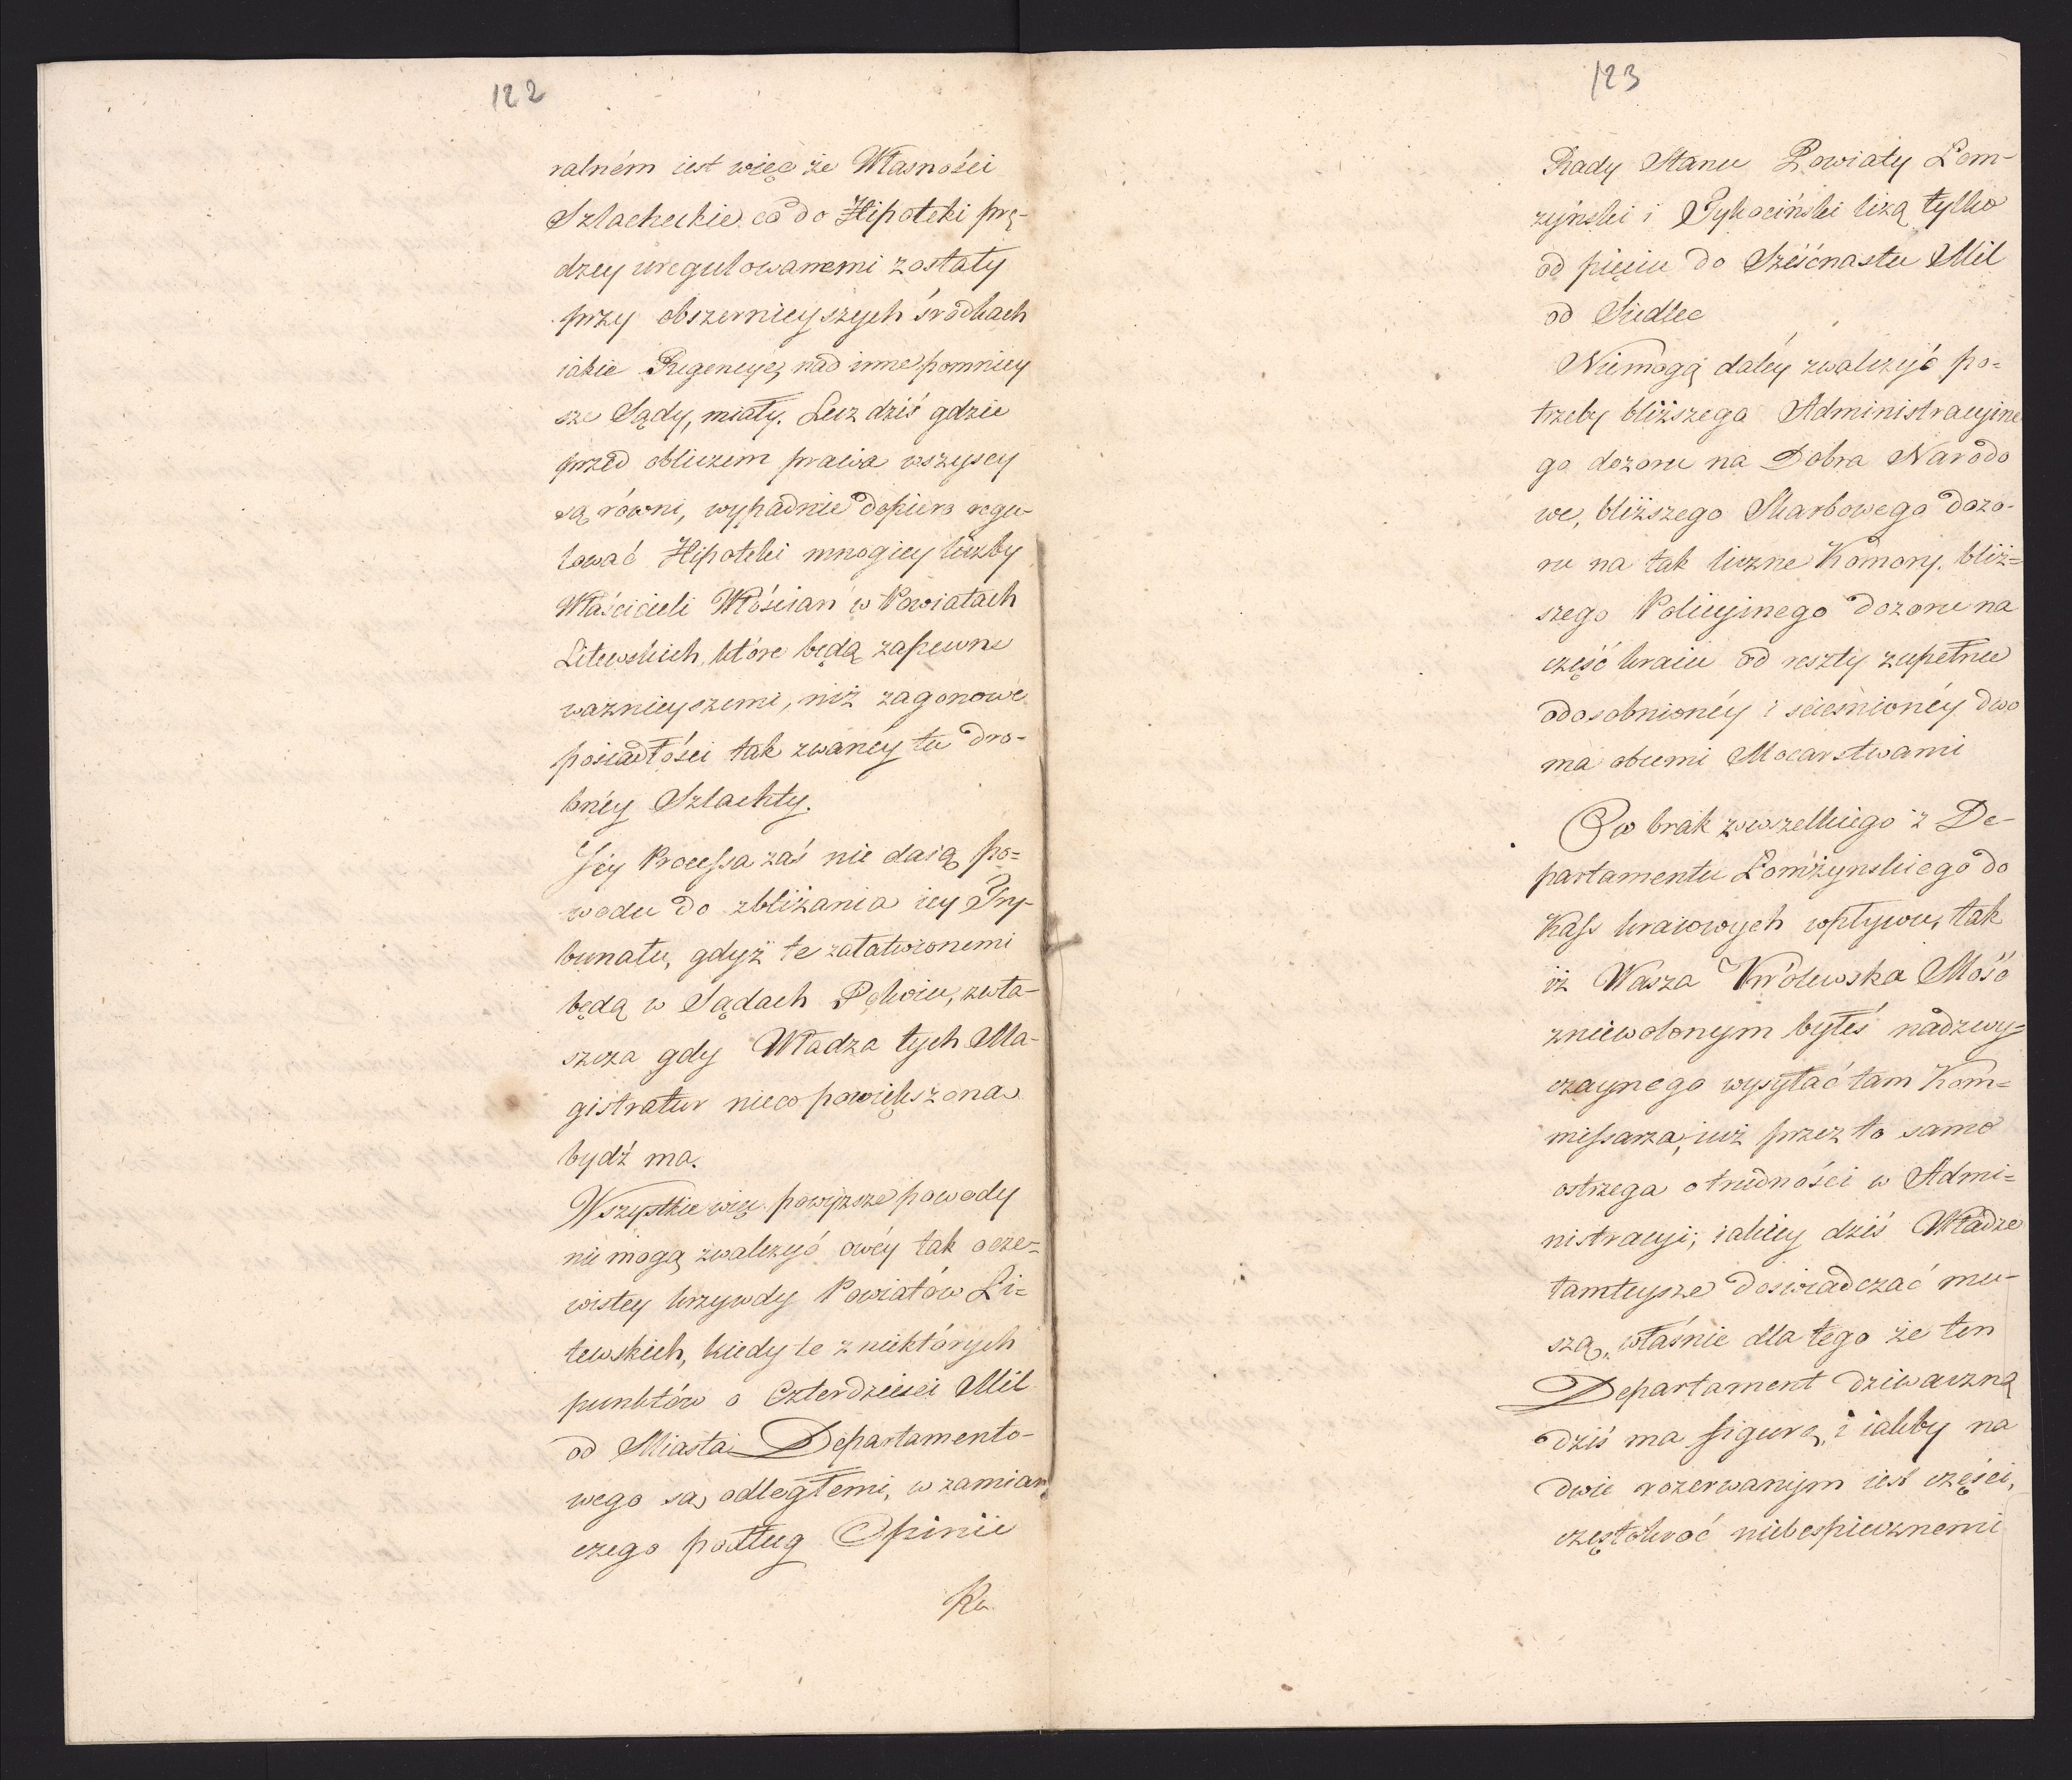 122
ralném iest więc że Własności
Szlacheckie co do Hipoteki prę-
dzey uregulowanemi zostały
przy obszernieyszych środkach
iakie Regencye, nad inne pomniey
sze Sądy, miały. Lecz dziś gdzie
przed obliczem prawa wszyscy
są równi, wypadnie dopiero regu-
lować Hipoteki mnogiey liczby
Właścicieli Włościan w Powiatach
Litewskich, które będą zapewne
ważnieyszemi, niż zagonowe
posiadłości tak zwanéy tu dro-
bnéy Szlachty.
Jéy Processa zaś nie daią po=
wodu do zbliżania iey Try-
bunału, gdyż te załatwionemi
będą w Sądach Pokoiu, zwła-
szcza gdy Władza tych Ma-
gistratur nieco powiększona
bydź ma.
Wszystkie więc powyższe powody
nie mogą zwalczyć owéy tak ocze=
wistey krzywdy Powiatów Li=
tewskich, kiedy te z niektórych
punktów o Czterdzieści Mil
od Miasta Departamento-
wego są odległemi, w zamian
czego podług Opinii
Ra
123
Rady Stanu Powiaty Łom-
żyński i Tykociński liczą tylko
od pięciu do Sześćnastu Mil
od Siedlec
Niemogą daléy zwalczyć po=
trzeby bliższego Administracyine
go dozoru na Dobra Narodo
we, bliższego Skarbowego dozo-
ru na tak liczne Komory, bliż=
szego Policyinego dozoru na
część kraiu od reszty zupełnie
odosobnionéy i ścieśnionéy dwo
ma obcemi Mocarstwami
Ow brak wszelkiego z De-
partamentu Łomżynskiego do
Kass kraiowych wpływu, tak
iż Wasza Królewska Mość
zniewolonym byłeś nadzwy=
czaynego wysyłać tam Kom=
missarza, iuż przez to samo
ostrzega o trudności w Admi=
nistracyi, iakiey dziś Władze
tamteysze doświadczać mu-
szą, właśnie dla tego że ten
Departament dziwaczną
dziś ma figurę, i iakby na
dwie rozerwanym iest części,
częstokroć niebespiecznemi